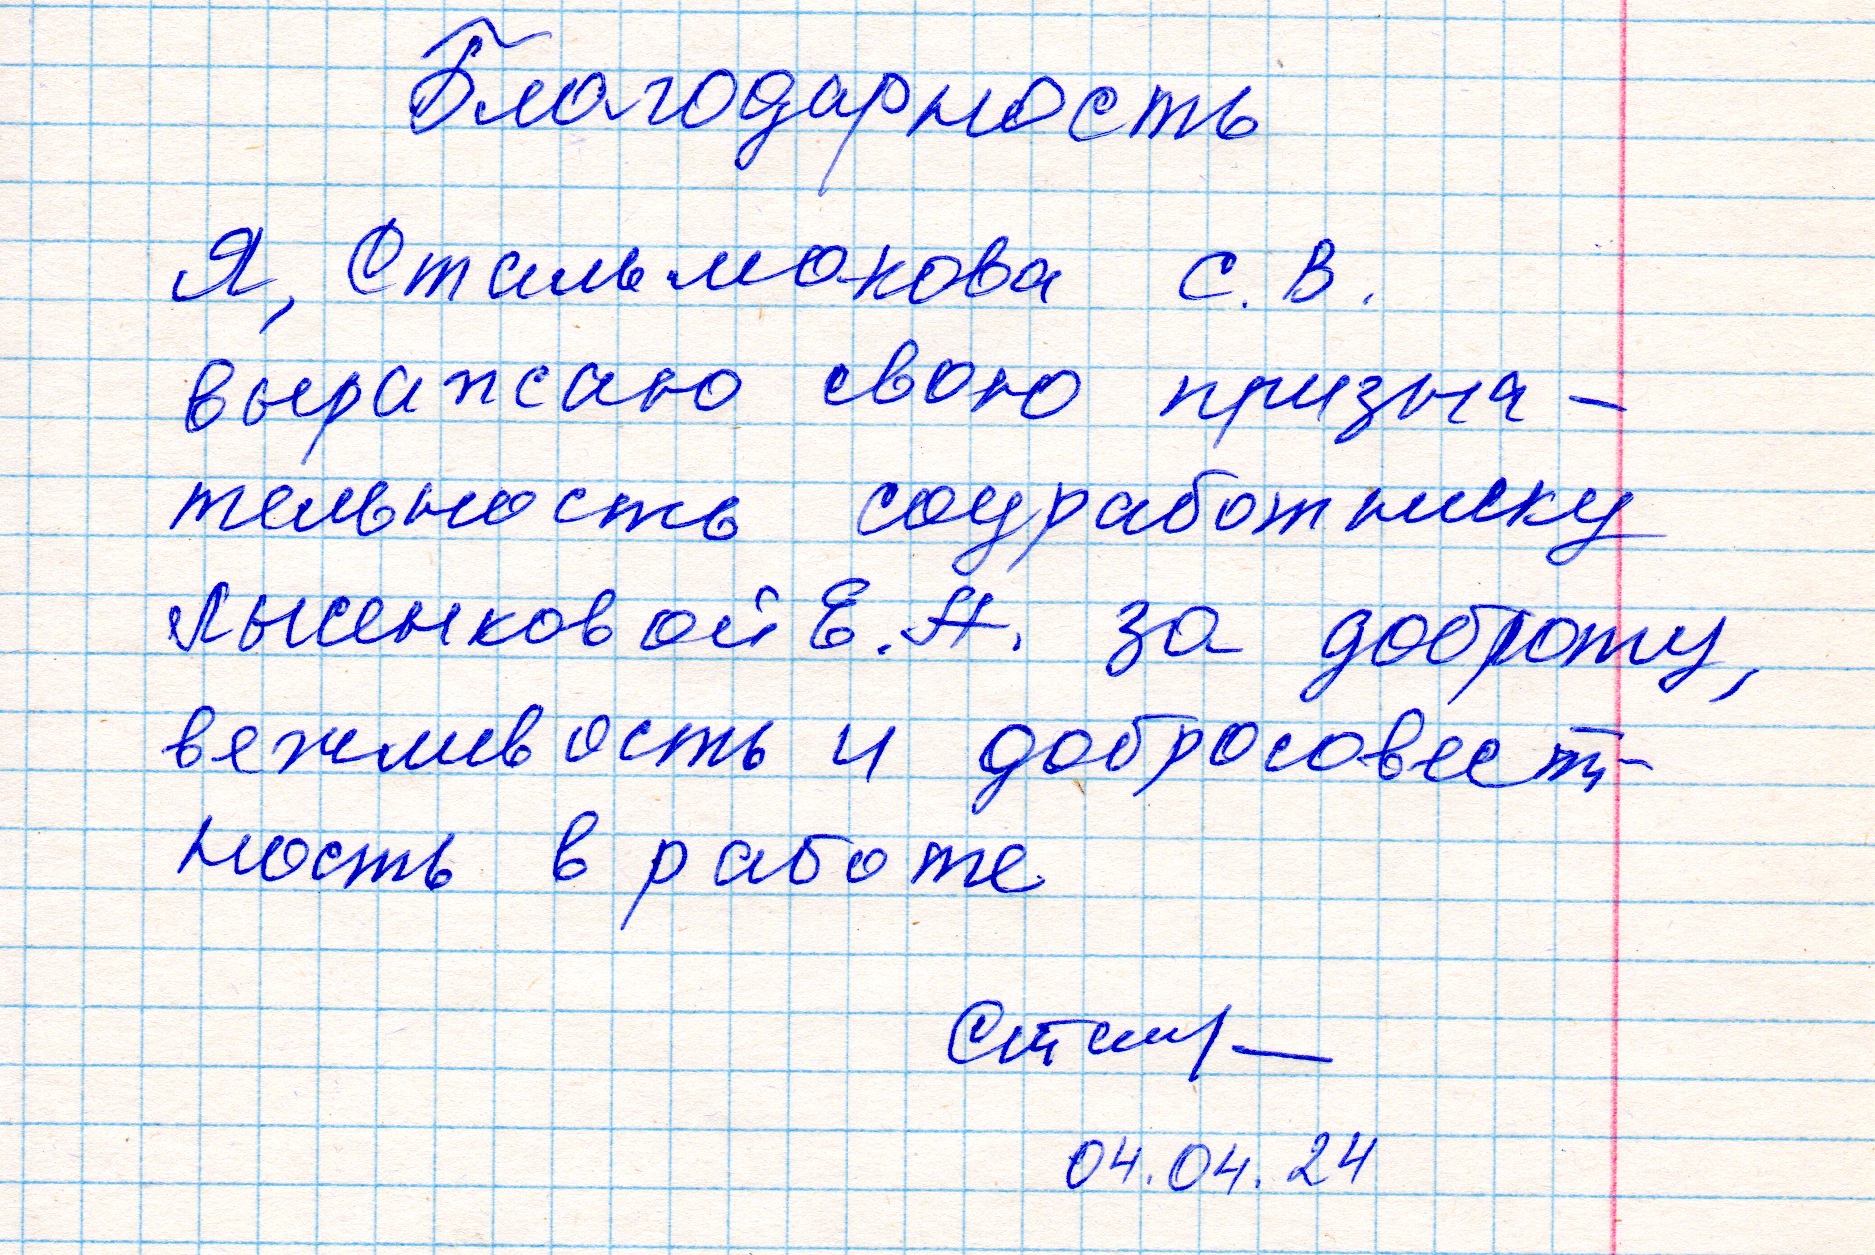 Благодарность
Я, Стальмакова С. В.
выражаю свою призна-
тельность соцработнику
Лысенковой Е. А. за доброту,
вежливость и добросовест-
ность в работе
04.04.24